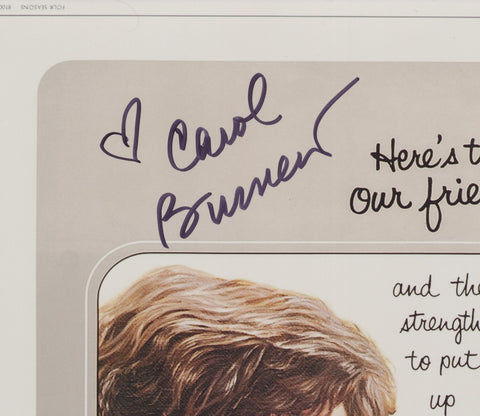 FOUR SEASONS 8100
♡ Carol
Burnett
Here's t
our frie
and the
strength
to put
up